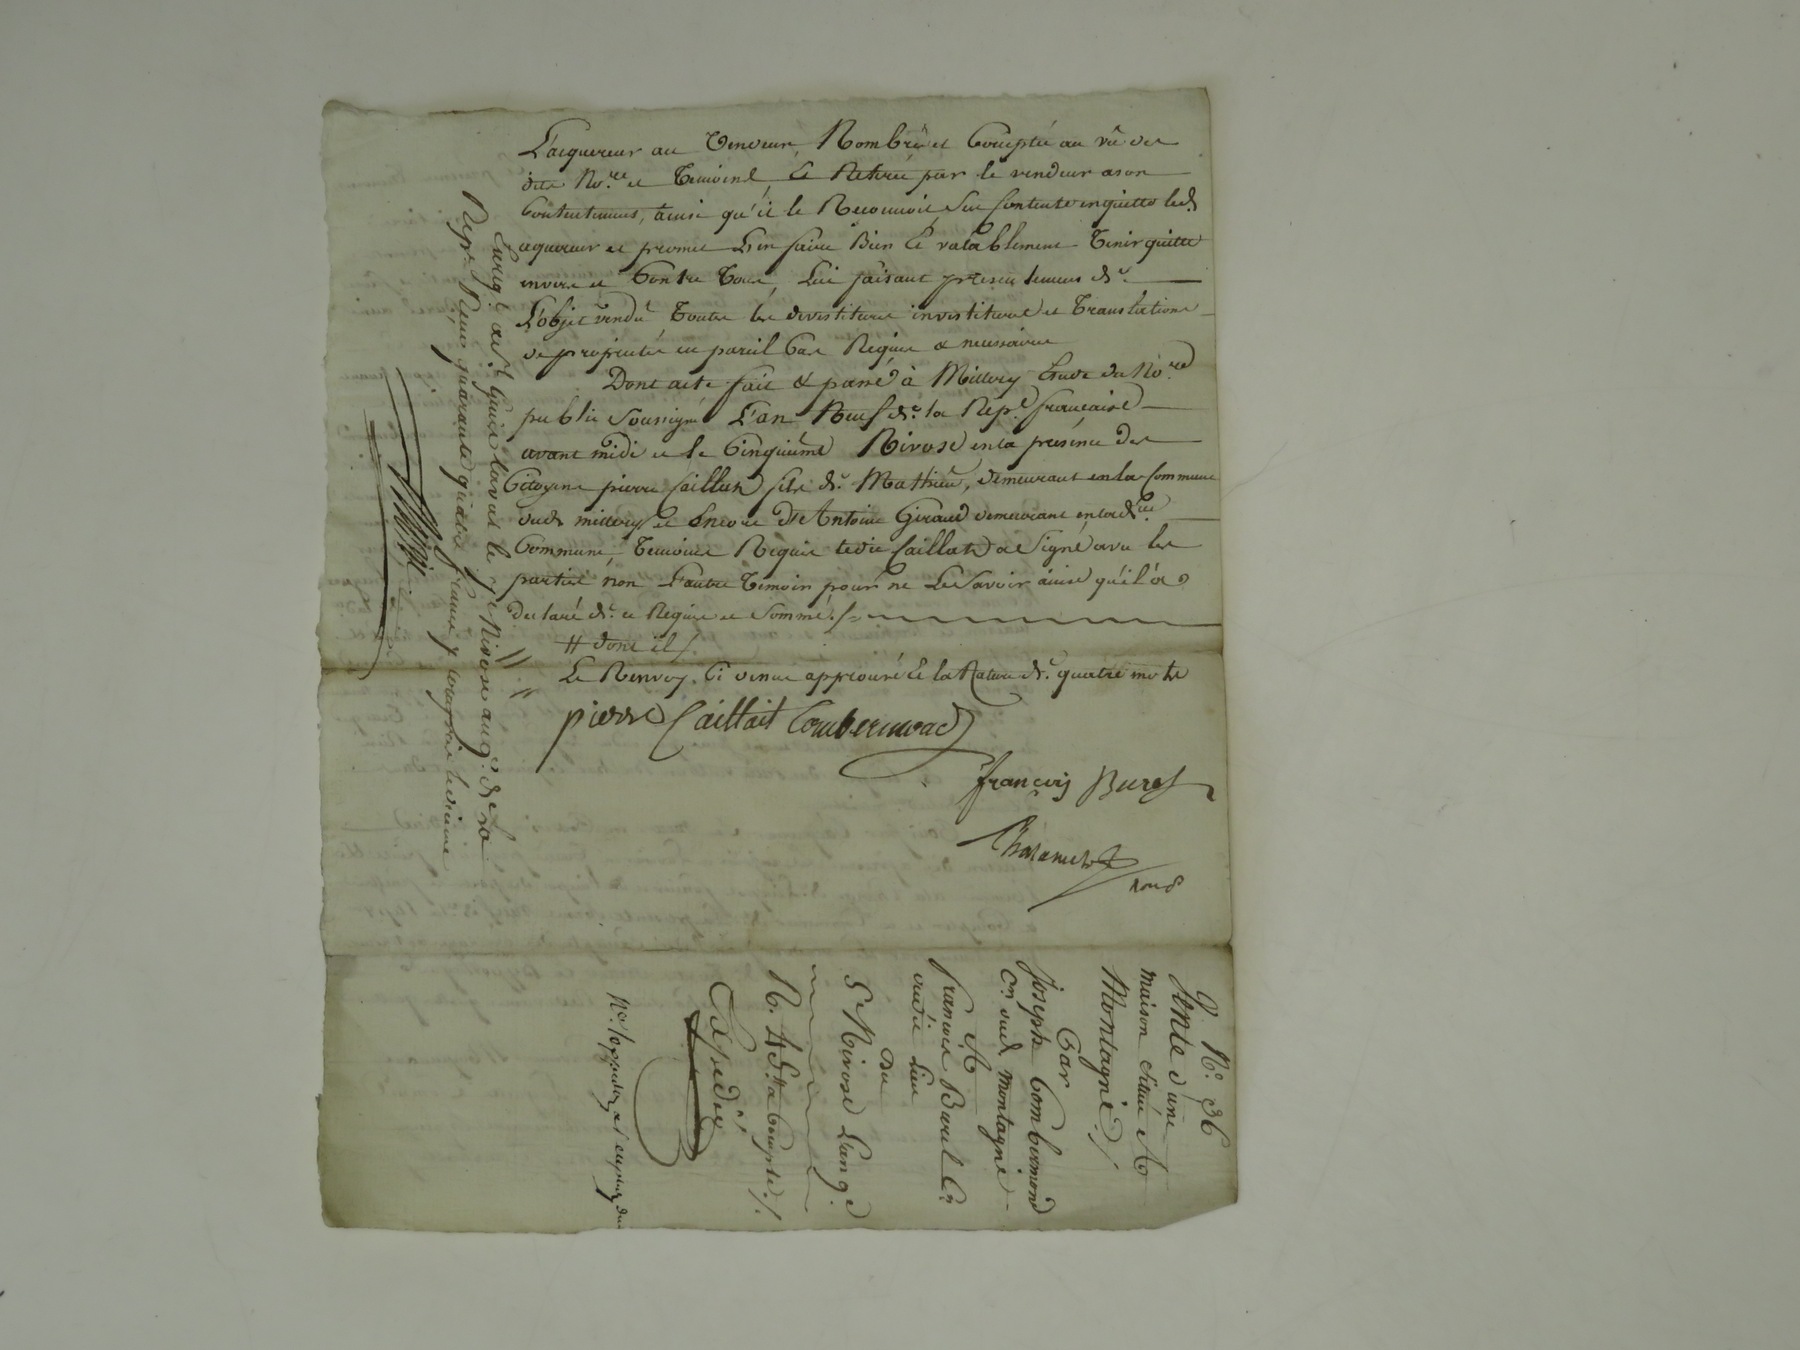 L'acquereur au Vendeur, Nombrée et Comptée au vû des
dits No.re et Temoins, Et Retirée par le vendeur a son
Contentement, ainsi qu'il le Reconnoit, s'en contente en quitte led.
aquereur et promet L'en faire Bien Et valablement Tenir quitte
envers et Contre Tous, Lui faisant presentement de
L'objet vendu Toutes les devestitures investitures et Translations
de propriétés en pareil Cas Requise & necessaires
Dont acte fait & passé à Millery Etude du No.re
public Soussigné L'an Neuf de la Rep.e francaise
avant midi et le Cinquieme Nivose en la presence des
Citoyens pierre Caillat fils de Mathieu, demeurant en la Commune
dud. millery et Encore d'Antoine Giraud demeurant en lad.te
Commune, Temoins Requis ledit Caillat a Signé avec les
parties non L'autre Temoin pour ne Le Savoir ainsi qu'il a
Declaré de ce Requis et Sommé./.
# dont il/.
Le Renvoy Ci dessus approuvé Et la Rature de quatre mots
pierre Caillait Combermond
françois Burel
no.re
Enreg.é a S.t Genis laval le Nivose an 9. de la
Rep.e Reçu quarante quatre francs y compris le dixieme
9. N.o 36
Vente d'une
maison Située A
Montagné./
Par
Joseph Combermond
C.n dud. montagné
A
francois Burel C.n
dudit Lieu
Du
5 Nivose L'an 9.e
R. 4
Expediée